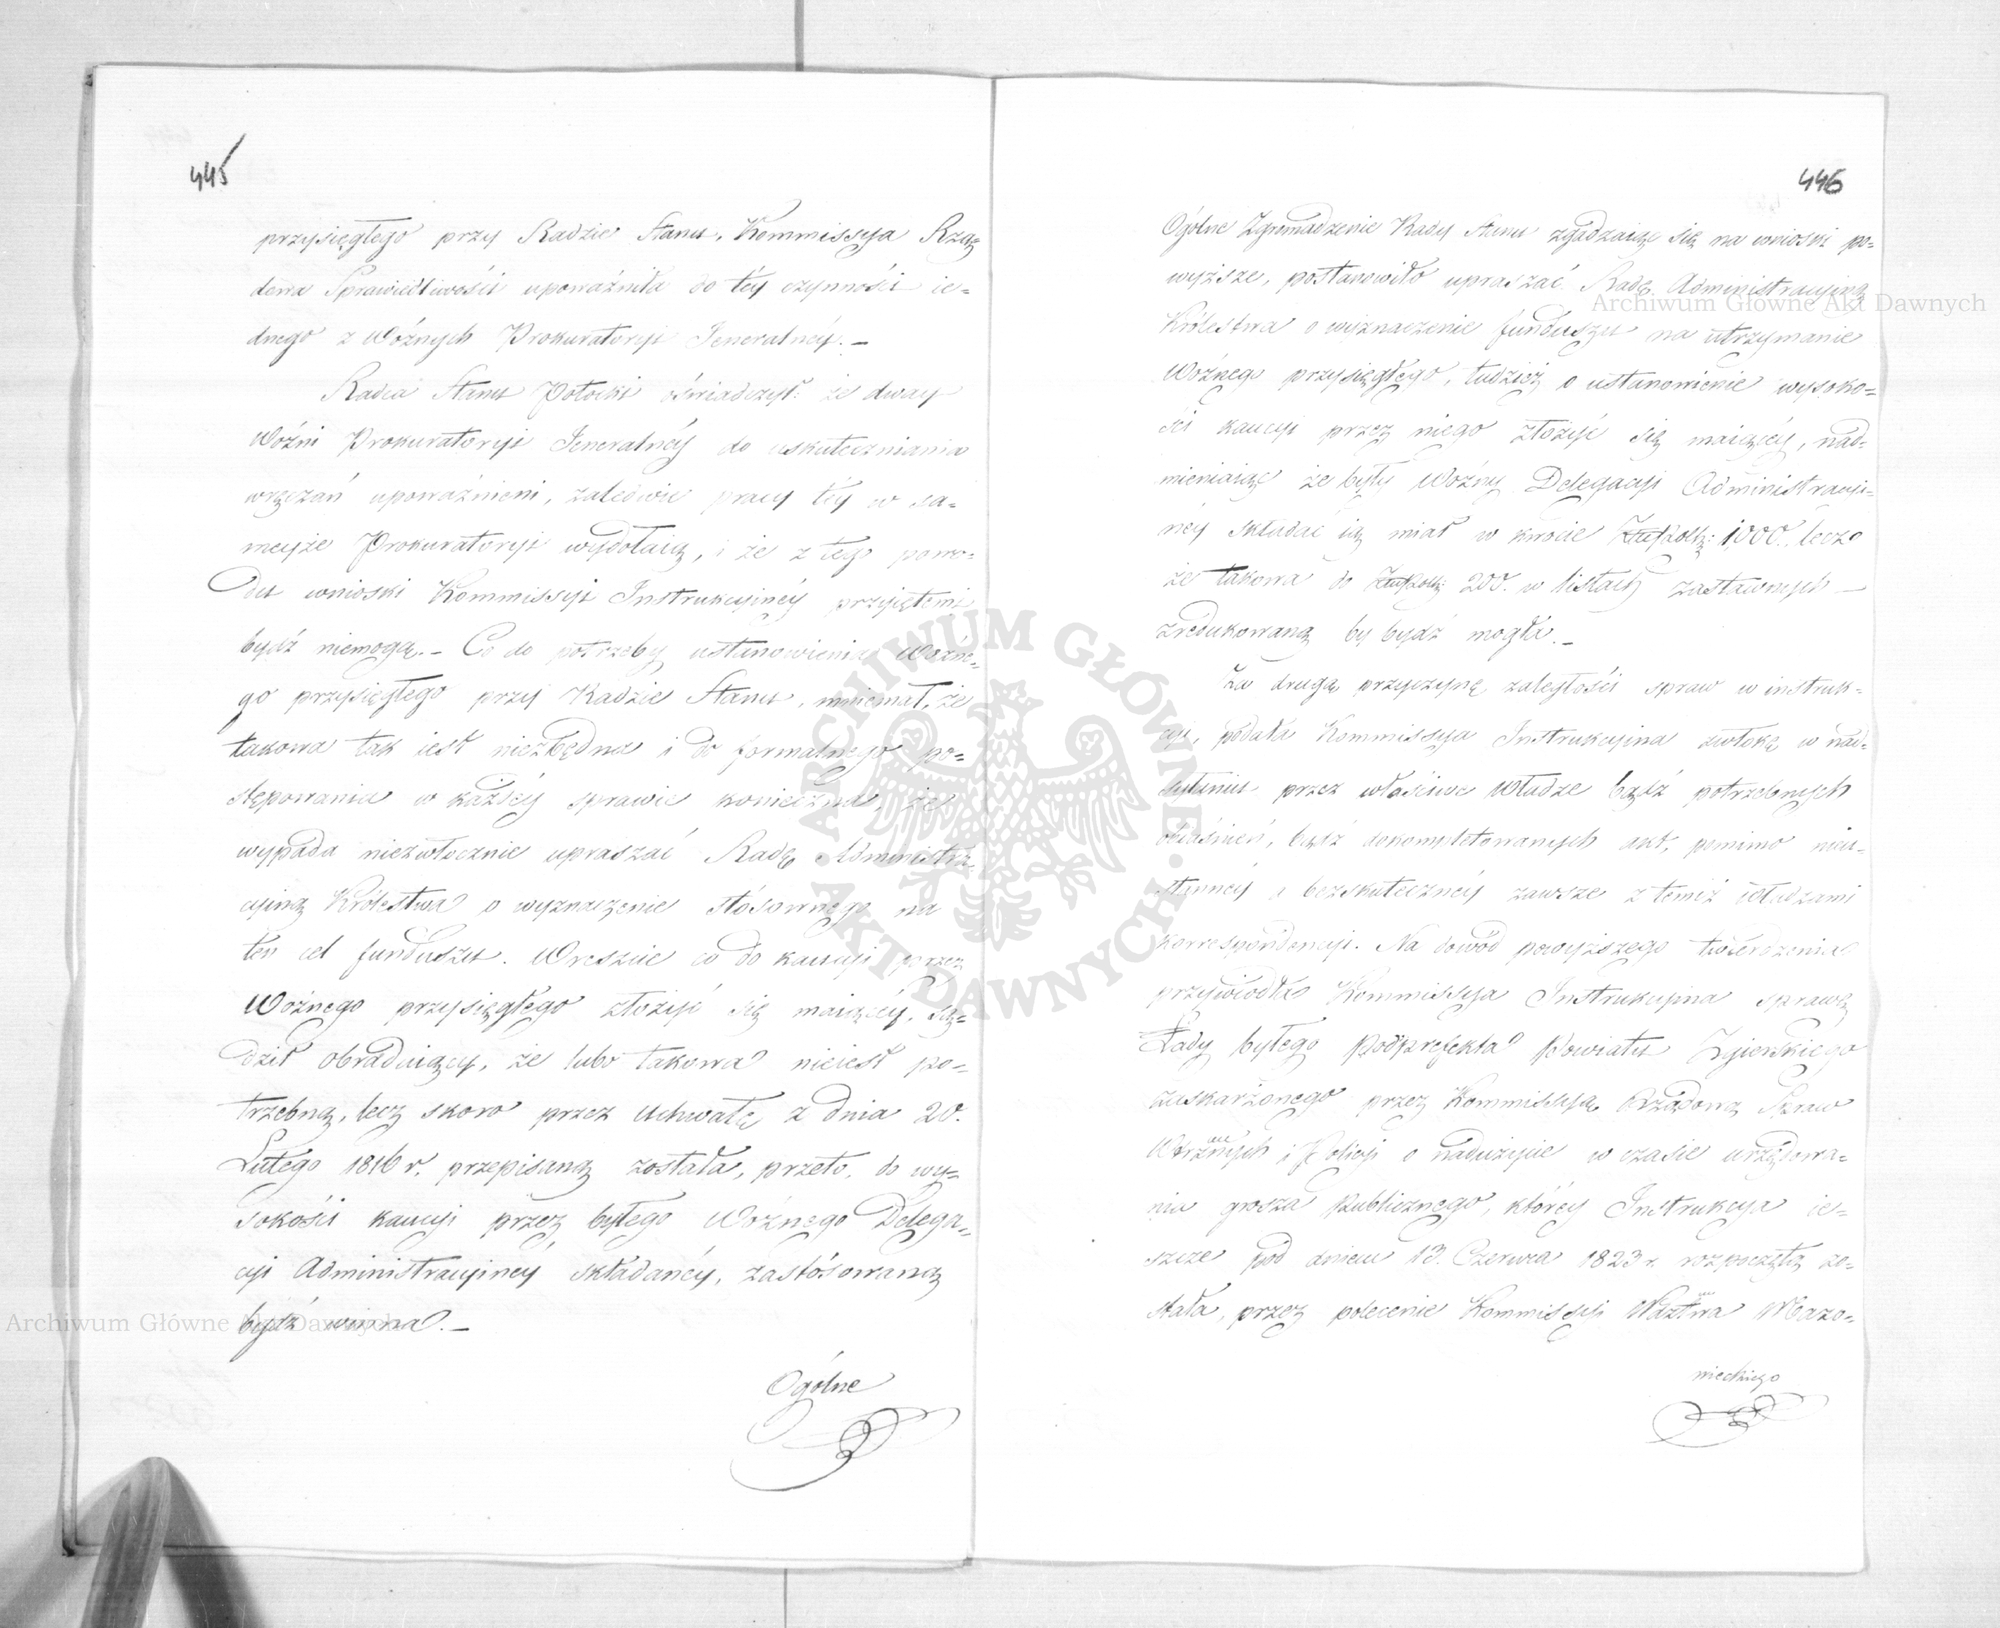 445
przysięgłego przy Radzie Stanu, Kommissya Rzą-
dowa Sprawiedliwości upoważniła do téy czynności ie-
dnego z Woźnych Prokuratoryi Jeneralnéy. —
Radca Stanu Potocki oświadczył: że dway
Woźni Prokuratoryi Jeneralnéy do uskuteczniania
wręczań upoważnieni, zaledwie pracy téy w sa-
meyże Prokuratoryi wydołaią, i że z tego powo-
du wnioski Kommissyi Instrukcyinéy przyiętemi
bydź niemogą. — Co do potrzeby ustanowienia Woźne-
go przysięgłego przy Radzie Stanu, mniemał, że
takowa tak iest niezbędna i do formalnego po-
stępowania w każdéy sprawie konieczna, że
wypada niezwłocznie upraszać Radę Administra-
cyiną Królestwa o wyznaczenie stósownego na
ten cel funduszu. Wreszcie co do kaucyi przez
Woźnego przysięgłego złożyć się maiącéy, są-
dził obraduiący, że lubo takowa nieiest po-
trzebną, lecz skoro przez Uchwałę z dnia 20.
Lutego 1816 r. przepisaną została, przeto, do wy-
sokości kaucyi przez byłego Woźnego Delega-
cyi Administracyinéy składanéy, zastósowaną
bydź winna. —
Ogólne
446
Ogólne Zgromadzenie Rady Stanu zgadzaiąc się na wnioski po-
wyższe, postanowiło upraszać Radę Administracyiną
Królestwa o wyznaczenie funduszu na utrzymanie
Woźnego przysięgłego, tudzież o ustanowienie wysoko-
ści kaucyi przez niego złożyć się maiącéy, nad-
mieniaiąc że były Woźny Delegacyi Administracyi-
néy składać ią miał w kwocie Złłpolk: 1,000. lecz
że takowa do Złłpolk: 200. w listach zastawnych —
zredukowaną by bydź mogła. —
Za drugą przyczynę zaległości spraw w instruk-
cyi, podała Kommissya Instrukcyina zwłokę w nad-
syłaniu przez właściwe Władze bądź potrzebnych
obiaśnień, bądź dokompletowanych akt, pomimo nieu-
stannéy a bezskutecznéy zawsze z temiż Władzami
korrespondencyi. Na dowód powyższego twierdzenia
przywiodła Kommissya Instrukcyina sprawę
Łady byłego Podprefekta Powiatu Zgierskiego
zaskarżonego przez Kommissyą Rządową Spraw
Wewnznych i Policyi o nadużycie w czasie urzędowa-
nia grosza Publicznego, któréy Instrukcya ie-
szcze pod dniem 13. Czerwca 1823 r. rozpoczętą zo-
stała, przez polecenie Kommissyi Wdztwa Mazo-
wieckiego
Archiwum Główne Akt Dawnych
Archiwum Główne Akt Dawnych
ARCHIWUM GŁÓWNE AKT DAWNYCH